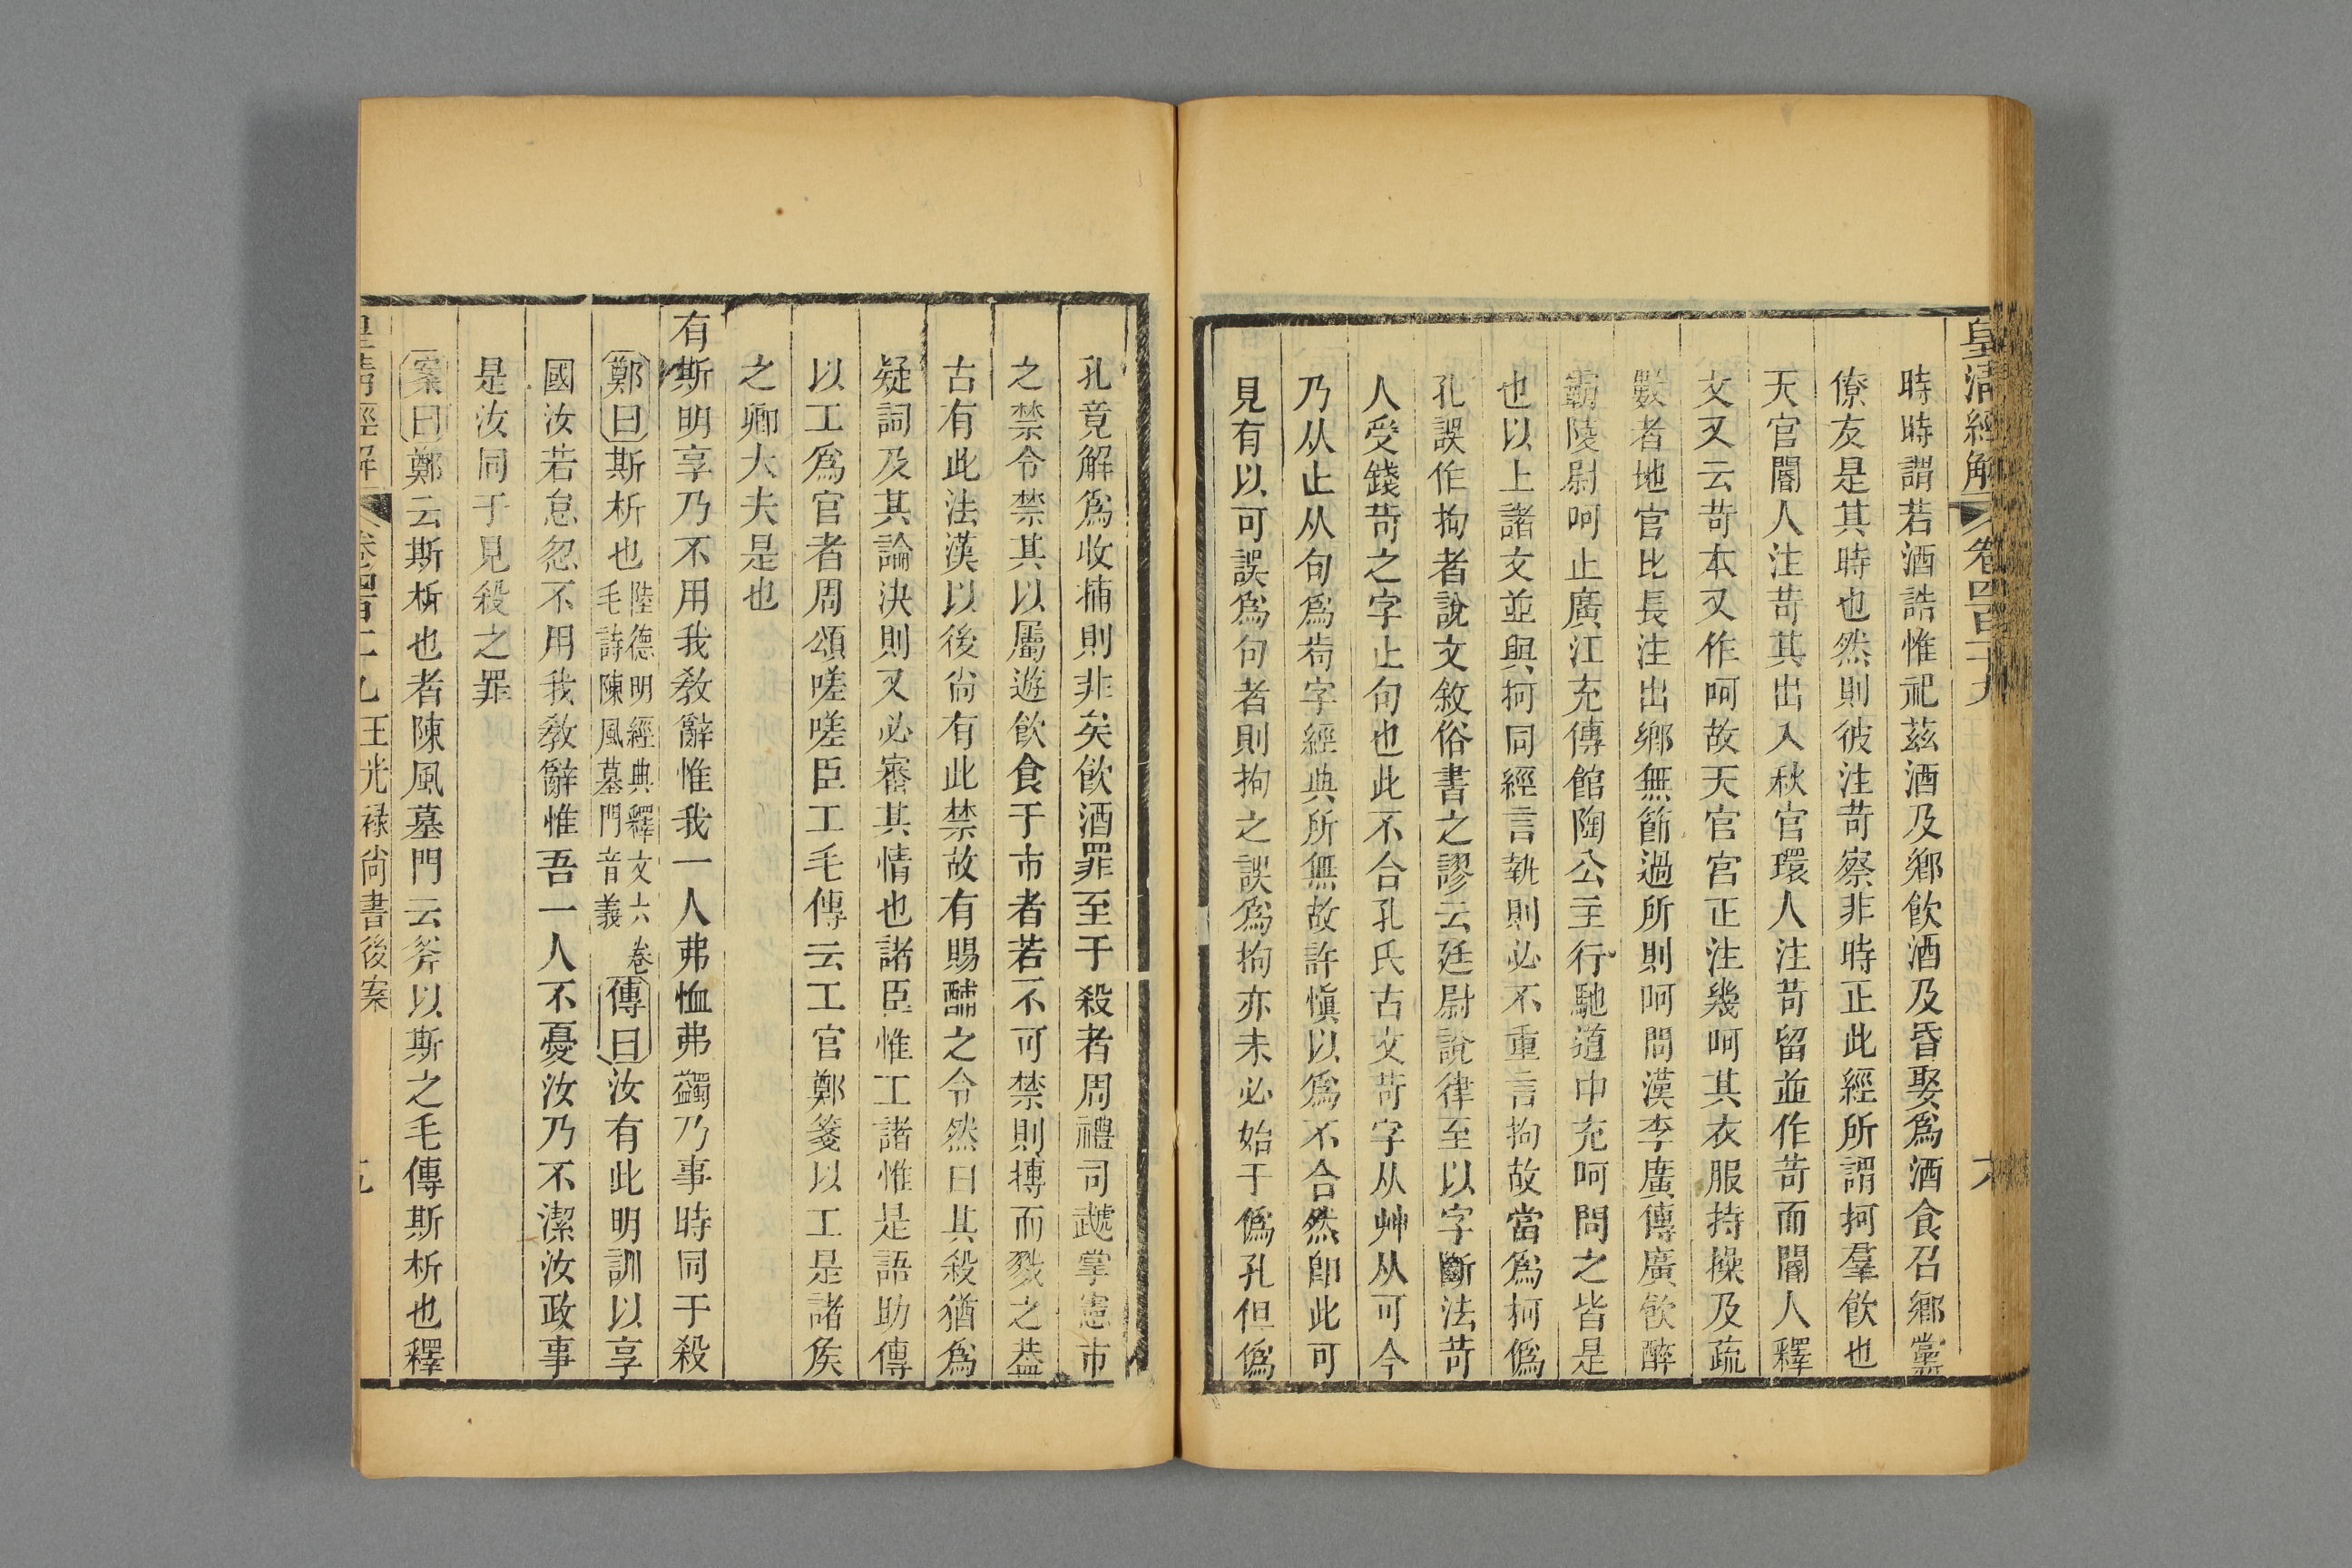 皇淸經解 卷四百十九 大
時時謂若酒誥惟祀茲酒及鄕飮酒及昏娶爲酒食召鄕黨
僚友是其時也然則彼注苛察非時正此經所謂抲羣飮也
天官閽人注苛其出入秋官環人注苛留並作苛而閽人釋
文又云苛本又作呵故天官宮正注幾呵其衣服持操及疏
數者地官比長注出鄕無節過所則呵問漢李廣傳廣飮醉
霸陵尉呵止廣江充傳館陶公主行馳道中充呵問之皆是
也以上諸文並與抲同經言執則必不重言拘故當爲抲僞
孔誤作拘者說文敘俗書之謬云廷尉說律至以字斷法苛
人受錢苛之字止句也此不合孔氏古文苛字从艸从可今
乃从止从句爲苟字經典所無故許愼以爲不合然卽此可
見有以可誤爲句者則抲之誤爲拘亦未必始于僞孔但僞
孔竟解爲收捕則非矣飮酒罪至于殺者周禮司虣掌憲市
之禁令禁其以屬遊飮食于市者若不可禁則搏而戮之葢
古有此法漢以後尙有此禁故有賜酺之令然曰其殺猶爲
疑詞及其論決則又必審其情也諸臣惟工諸惟是語助傳
以工爲官者周頌嗟嗟臣工毛傳云工官鄭箋以工是諸侯
之卿大夫是也
有斯明享乃不用我敎辭惟我一人弗恤弗蠲乃事時同于殺
鄭曰斯析也陸德明經典釋文六卷毛詩陳風墓門音義傳曰汝有此明訓以享
國汝若怠忽不用我敎辭惟吾一人不憂汝乃不潔汝政事
是汝同于見殺之罪
案曰鄭云斯析也者陳風墓門云斧以斯之毛傳斯析也釋
皇淸經解 卷四百二九 王光祿尙書後案